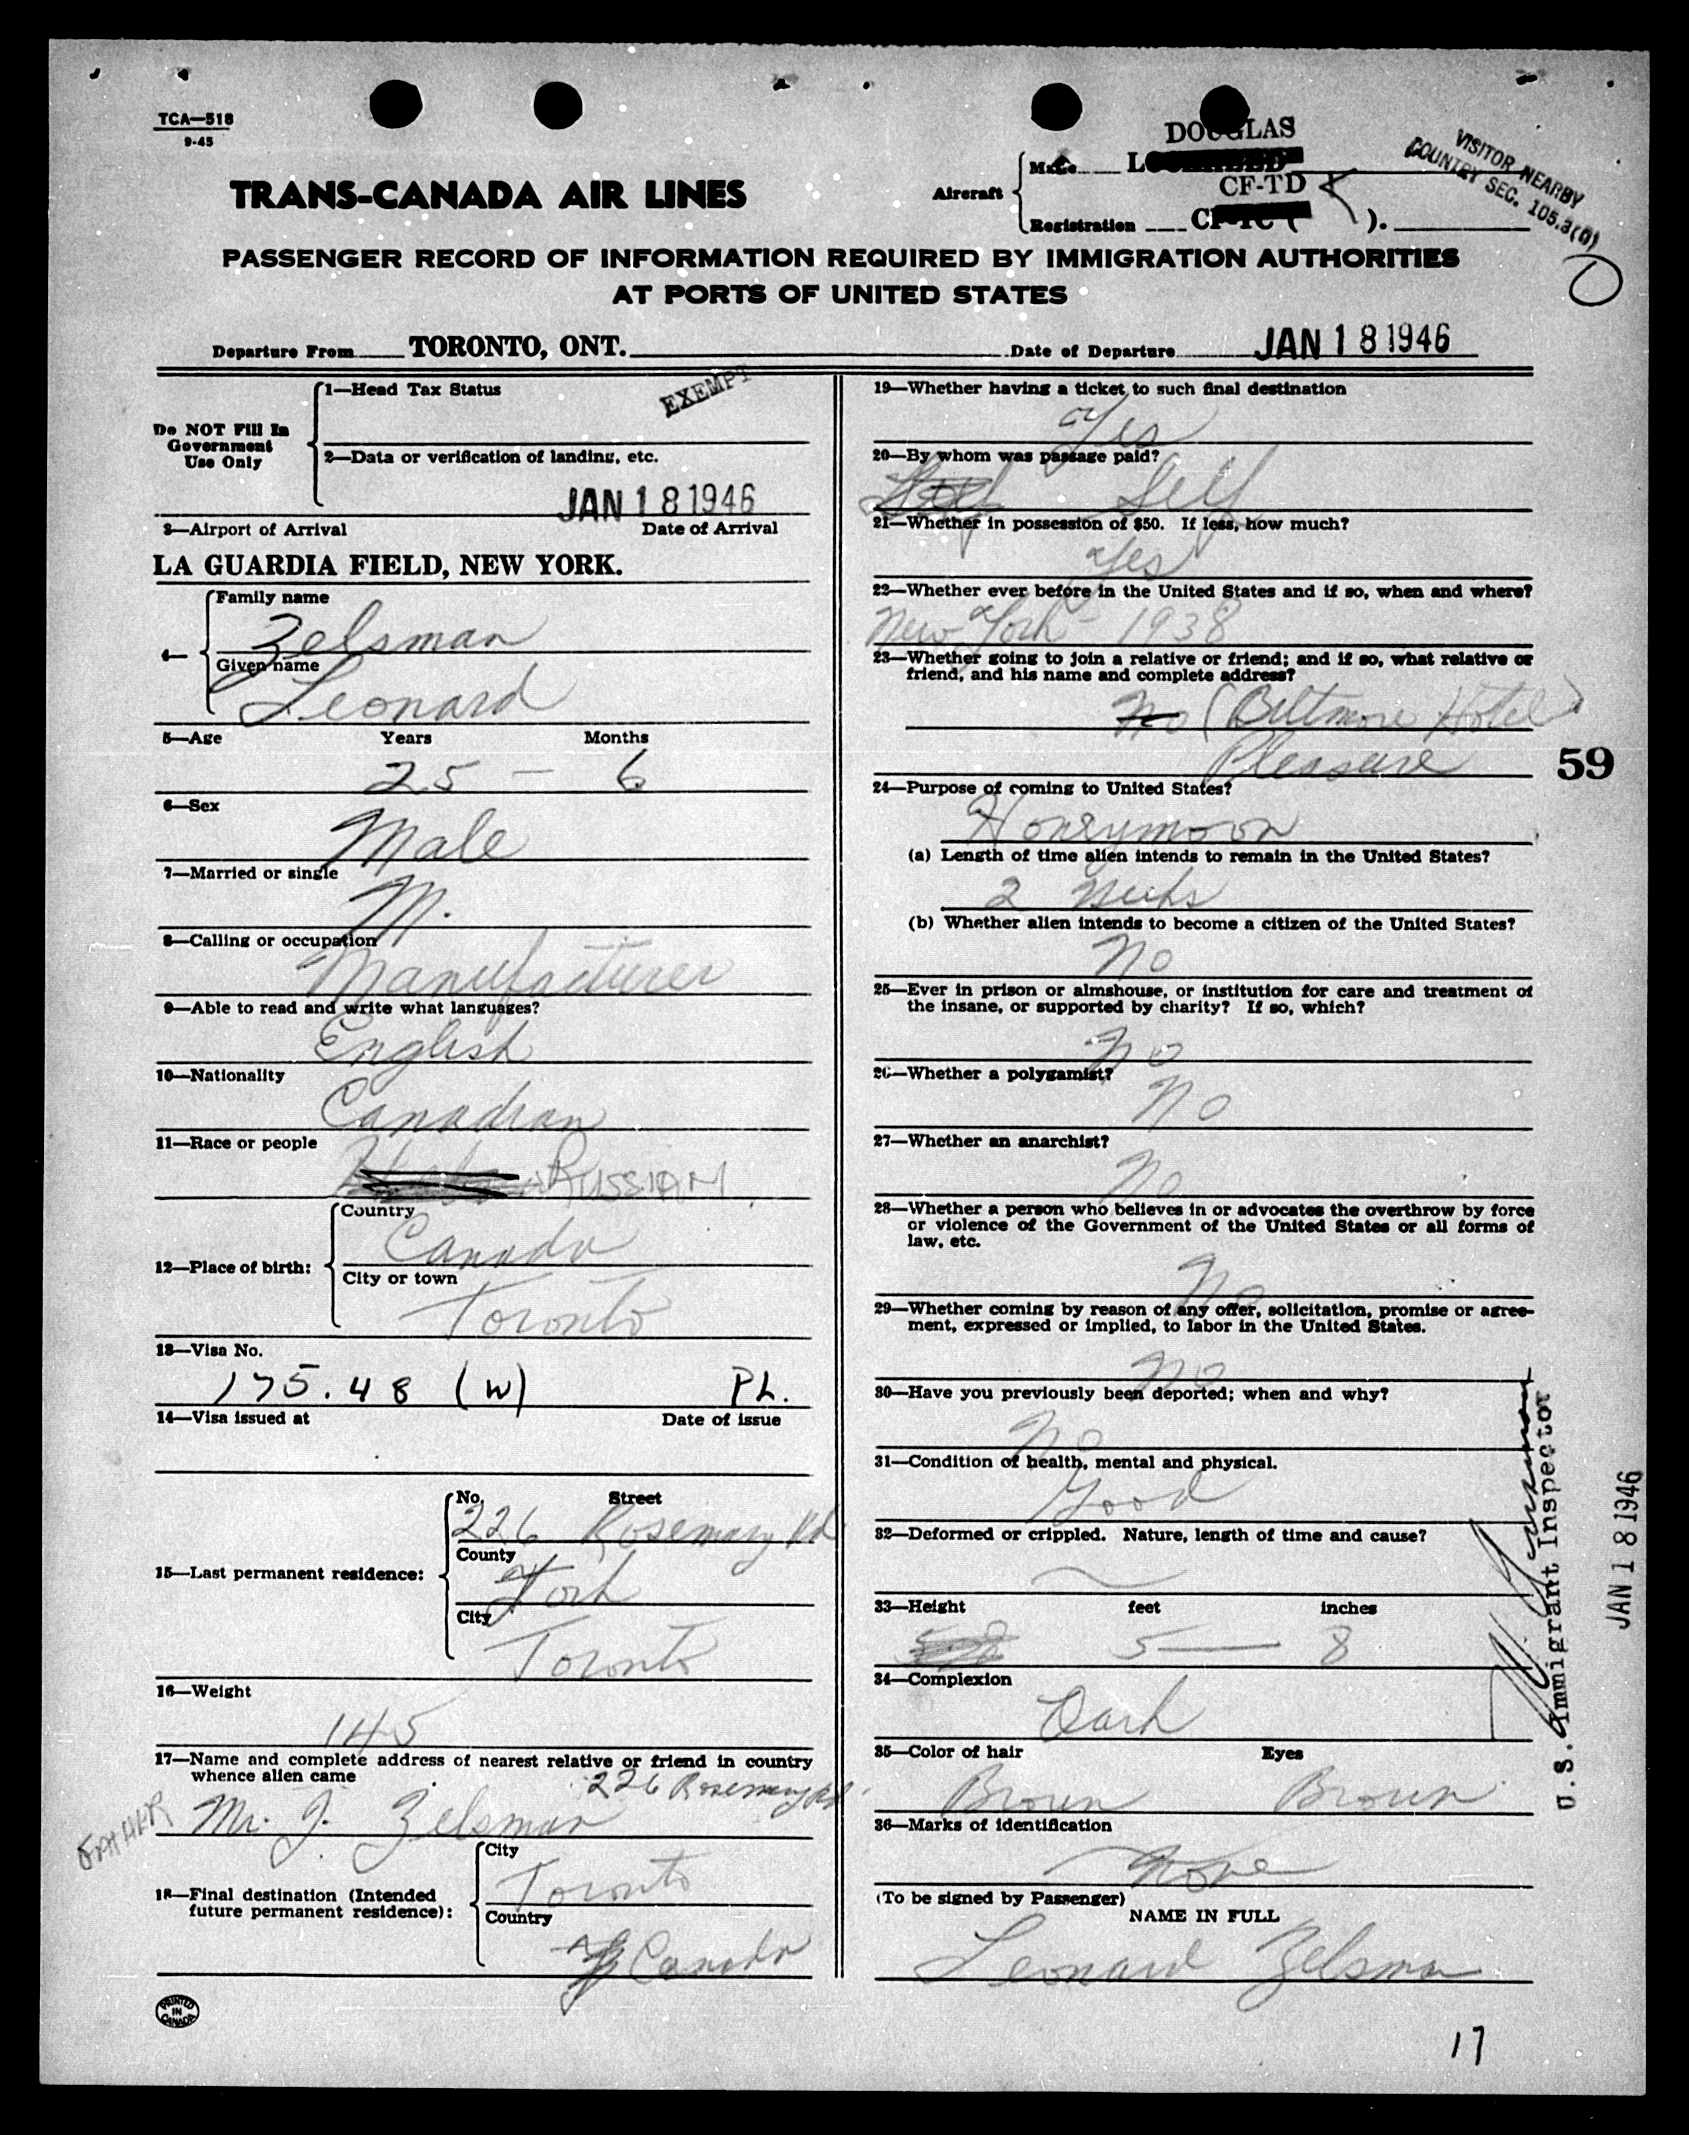 TCA—518
9-45
DOUGLAS
VISITOR NEARBY
COUNTRY SEC. 105.3(0)
TRANS-CANADA AIR LINES
Aircraft
Make
CF-TD
Registration
).
PASSENGER RECORD OF INFORMATION REQUIRED BY IMMIGRATION AUTHORITIES
AT PORTS OF UNITED STATES
Departure From TORONTO, ONT. Date of Departure JAN 18 1946
Do NOT Fill In
Government
Use Only
1—Head Tax Status
EXEMPT
2—Data or verification of landing, etc.
JAN 18 1946
3—Airport of Arrival Date of Arrival
LA GUARDIA FIELD, NEW YORK.
4—
Family name
Zelsman
Given name
Leonard
5—Age Years Months
25 – 6
6—Sex
Male
7—Married or single
M.
8—Calling or occupation
Manufacturer
9—Able to read and write what languages?
English
10—Nationality
Canadian
11—Race or people
RUSSIAN
12—Place of birth:
Country
Canada
City or town
Toronto
13—Visa No.
175.48 (W) PL.
14—Visa issued at Date of issue
15—Last permanent residence:
No. Street
226 Rosemary Rd
County
York
City
Toronto
16—Weight
145
17—Name and complete address of nearest relative or friend in country
whence alien came
226 Rosemary Rd
Mr. J. Zelsman
FATHER
18—Final destination (Intended
future permanent residence):
City
Toronto
Country
Canada
PRINTED
IN
CANADA
19—Whether having a ticket to such final destination
Yes
20—By whom was passage paid?
Self
21—Whether in possession of $50. If less, how much?
Yes
22—Whether ever before in the United States and if so, when and where?
New York – 1938
23—Whether going to join a relative or friend; and if so, what relative or
friend, and his name and complete address?
No (Biltmore Hotel)
Pleasure
59
24—Purpose of coming to United States?
Honeymoon
(a) Length of time alien intends to remain in the United States?
2 weeks
(b) Whether alien intends to become a citizen of the United States?
No
25—Ever in prison or almshouse, or institution for care and treatment of
the insane, or supported by charity? If so, which?
No
26—Whether a polygamist?
No
27—Whether an anarchist?
No
28—Whether a person who believes in or advocates the overthrow by force
or violence of the Government of the United States or all forms of
law, etc.
No
29—Whether coming by reason of any offer, solicitation, promise or agree-
ment, expressed or implied, to labor in the United States.
No
30—Have you previously been deported; when and why?
No
31—Condition of health, mental and physical.
Good
32—Deformed or crippled. Nature, length of time and cause?
33—Height feet inches
5 — 8
34—Complexion
Dark
35—Color of hair Eyes
Brown Brown
36—Marks of identification
None
(To be signed by Passenger)
NAME IN FULL
Leonard Zelsman
U.S. Immigrant Inspector
JAN 18 1946
17